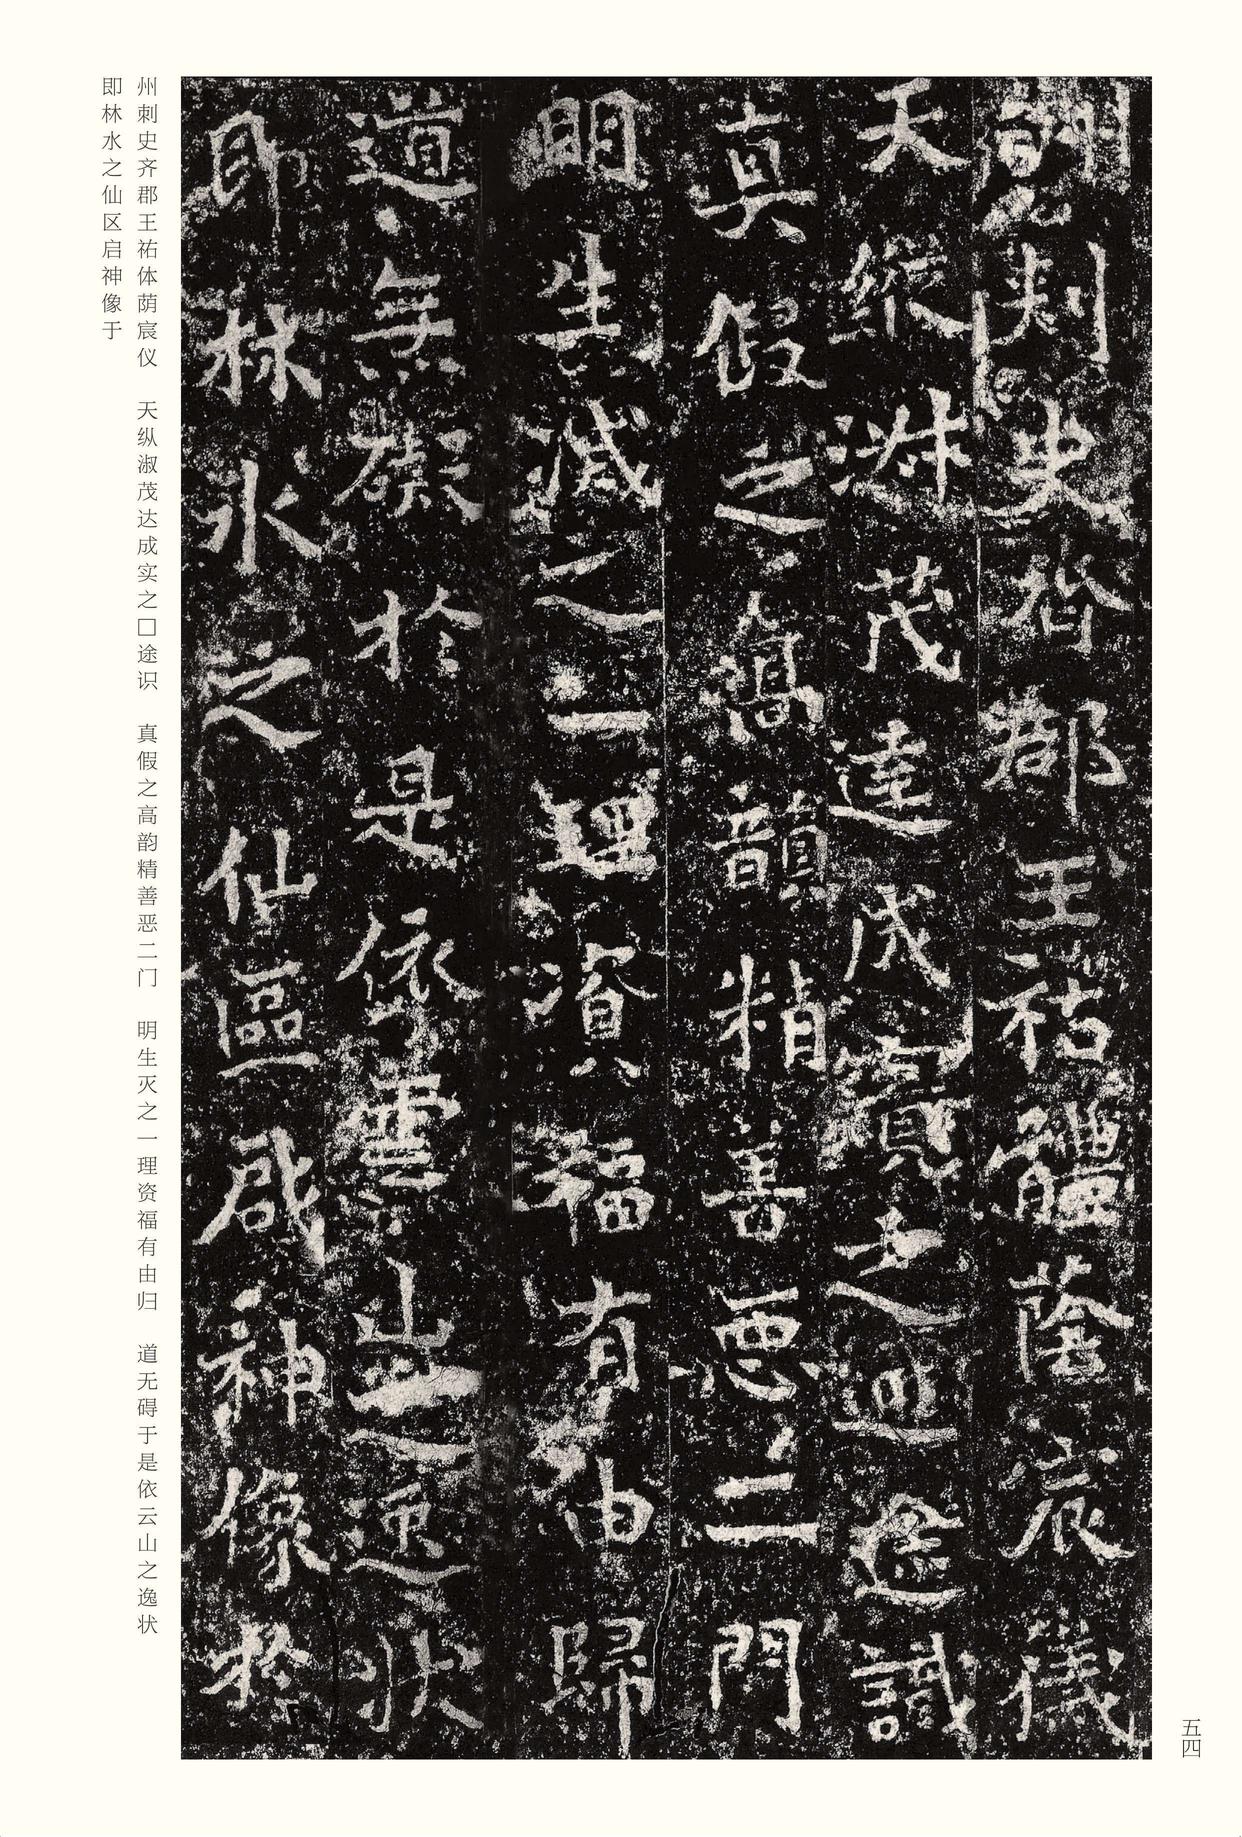 刾史齊郡王祐體蔭宸儀
天縱淑茂達成實之途識
真假之高韻精善惡二門
明生滅之一理資福有由歸
道無礙於是依雲山之逸狀
即林水之仙區啟神像於
州刺史齐郡王祐体荫宸仪　天纵淑茂达成实之□途识　真假之高韵精善恶二门　明生灭之一理资福有由归　道无碍于是依云山之逸状
即林水之仙区启神像于
五四